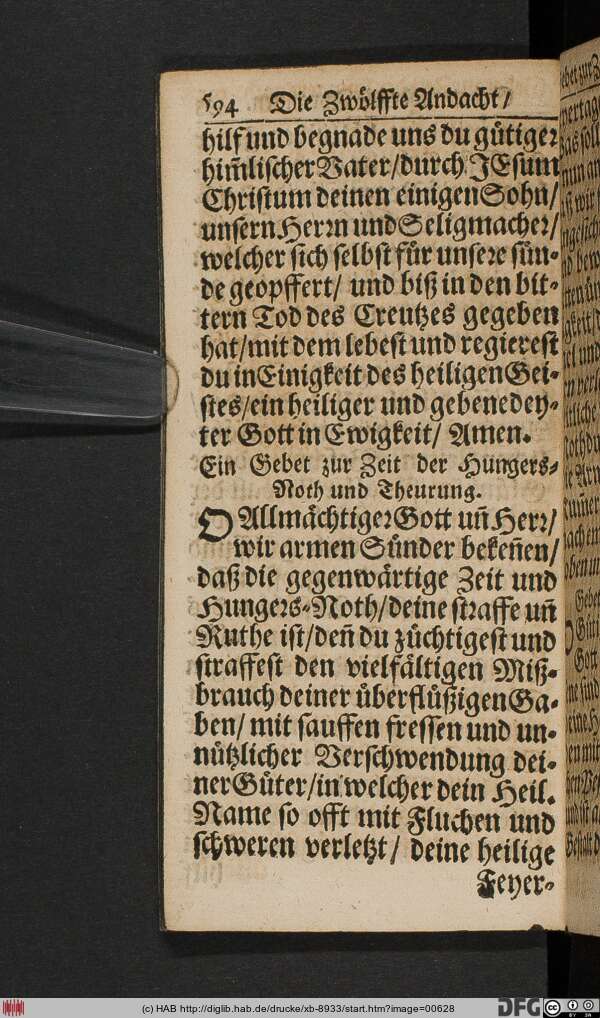 594 Die Zwölffte Andacht/
hilf und begnade uns du gütiger
him̃lischer Vater/durch JEsum
Christum deinen einigen Sohn/
unsern Herrn und Seligmacher/
welcher sich selbst für unsere sün-
de geopffert/ und biß in den bit-
tern Tod des Creutzes gegeben
hat/mit dem lebest und regierest
du in Einigkeit des heiligen Gei-
stes/ein heiliger und gebenedey-
ter Gott in Ewigkeit/ Amen.
Ein Gebet zur Zeit der Hungers-
Noth und Theurung.
O Allmächtiger Gott uñ Herr/
wir armen Sünder bekeñen/
daß die gegenwärtige Zeit und
Hungers-Noth/deine straffe uñ
Ruthe ist/deñ du züchtigest und
straffest den vielfältigen Miß-
brauch deiner überflüßigen Ga-
ben/ mit sauffen fressen und un-
nützlicher Verschwendung dei-
ner Güter/in welcher dein Heil.
Name so offt mit Fluchen und
schweren verletzt/ deine heilige
Feyer-
(c) HAB http://diglib.hab.de/drucke/xb-8933/start.htm?image=00628
DFG
cc
BY SA